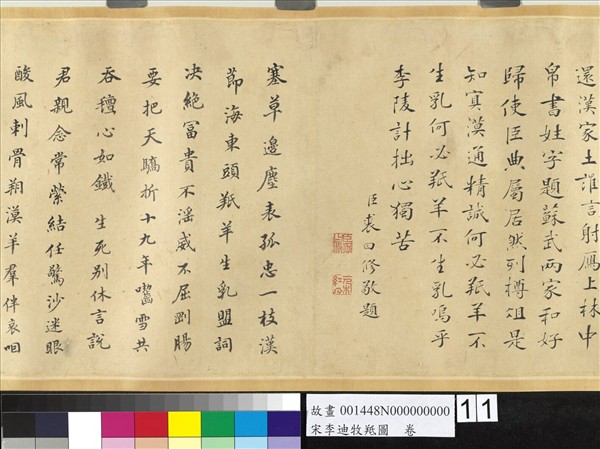 還漢家土誰言射鴈上林中
帛書姓字題蘇武兩家和好
歸使臣典屬居然列樽俎是
知冥漠通精誠何必羝羊不
生乳何必羝羊不生乳嗚乎
李陵計拙心獨苦
臣裘曰修敬題
塞草邊塵表孤忠一枝漢
節海東頭羝羊生乳盟詞
決絕富貴不滛威不屈剖腸
要把天驕折十九年嚙雪共
吞氊心如鐵 生死別休言說
君親念常縈結任驚沙迷眼
酸風刺骨朔漠羊羣伴哀咽
故畫 001448N000000000
宋李迪牧羝圖 卷
11